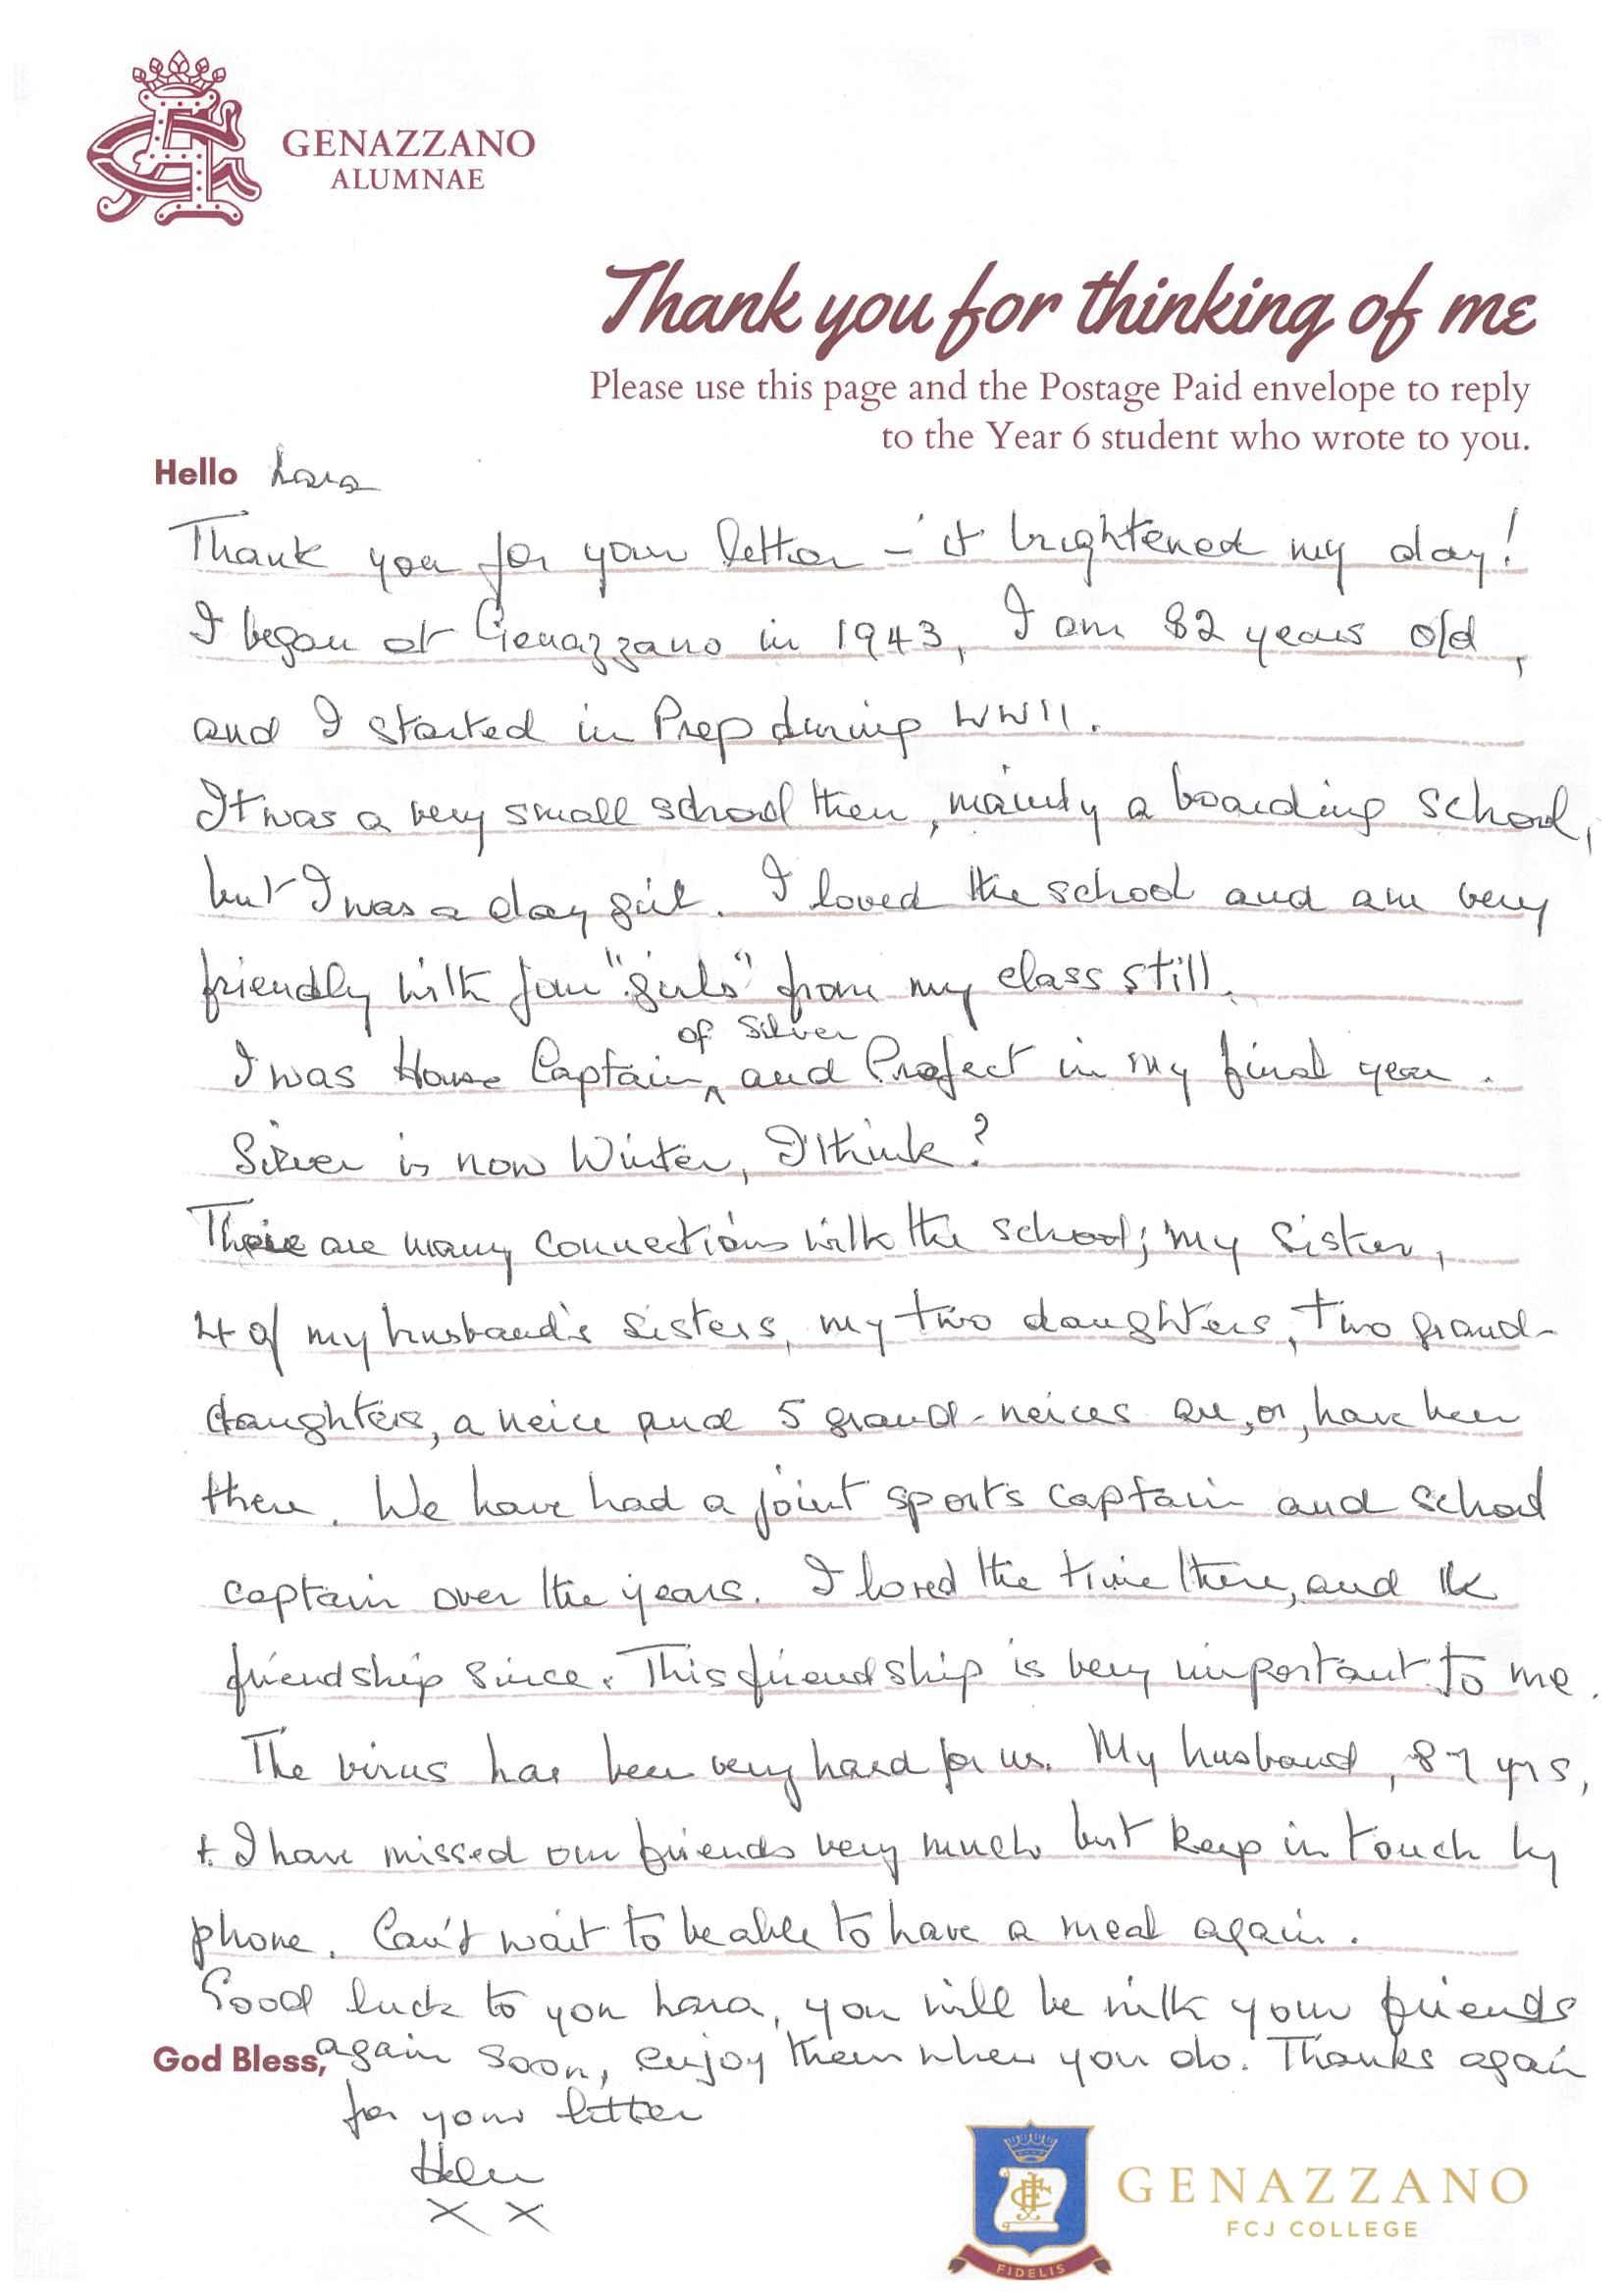 GENAZZANO
ALUMNAE
Thank you for thinking of me
Please use this page and the Postage Paid envelope to reply
to the Year 6 student who wrote to you.
Hello Lara
Thank you for your letter – it brightened my day!
I began at Genazzano in 1943, I am 82 years old,
and I started in Prep during WWII.
It was a very small school then, mainly a boarding school,
but I was a day girl. I loved the school and am very
friendly with four "girls" from my class still.
of Silver
I was House Captain ^ and Prefect in my final year.
Silver is now Winter, I think?
There are many connections with the school; my sister,
4 of my husband's sisters, my two daughters, two grand-
daughters, a neice and 5 grand-neices are, or, have been
there. We have had a joint sports captain and school
captain over the years. I loved the time there, and the
friendship since. This friendship is very important to me.
The virus has been very hard for us. My husband, 87 yrs,
+ I have missed our friends very much but keep in touch by
phone. Can't wait to be able to have a meal again.
Good luck to you Lara, you will be with your friends
God Bless, again soon, enjoy them when you do. Thanks again
for your letter
Helen
X X
GENAZZANO
FCJ COLLEGE
FIDELIS